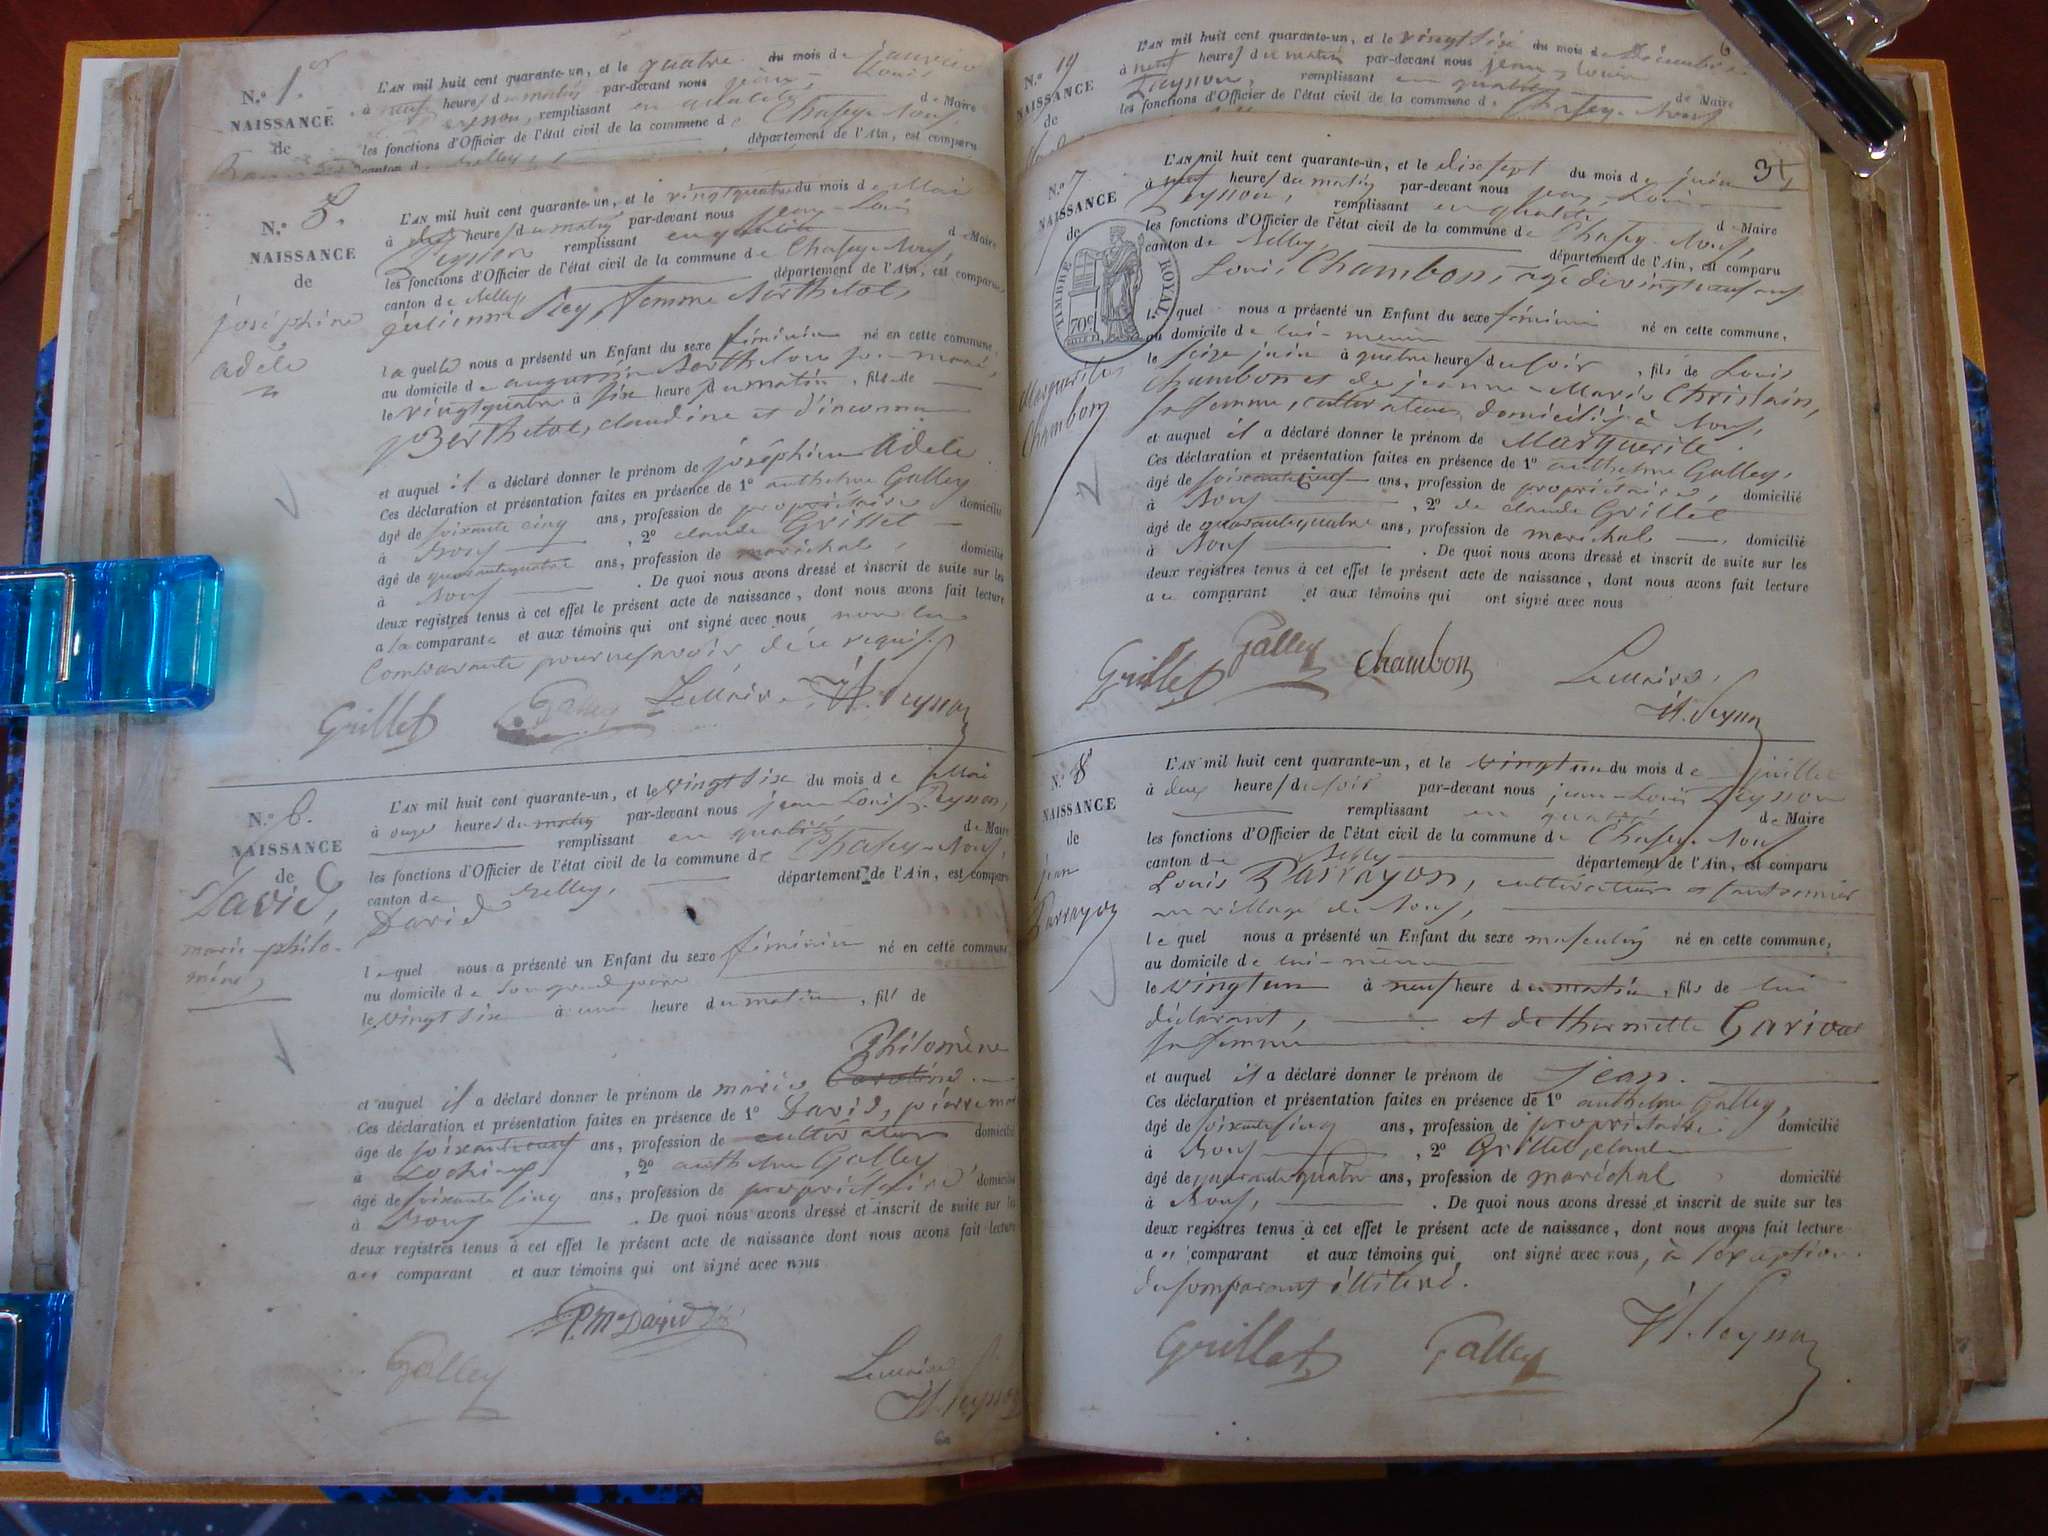 N.º 1.er
NAISSANCE
de
L'AN mil huit cent quarante-un, et le quatre du mois de janvier
à neuf heures du matin par-devant nous jean-Louis
remplissant en qualité de Maire
les fonctions d'Officier de l'état civil de la commune de Chasey-Nouf,
canton de Belley département de l'Ain, est comparu
N.º 5.
NAISSANCE
de
joséphine
adèle
L'AN mil huit cent quarante-un, et le vingtquatre du mois de Mai
à heures du matin par-devant nous jean-Louis
Peysson remplissant en qualité de Maire
les fonctions d'Officier de l'état civil de la commune de Chasey-Nouf,
canton de Belley département de l'Ain, est comparue,
julienne Rey, femme Berthelot,
laquelle nous a présenté un Enfant du sexe féminin né en cette commune,
au domicile de augustin Berthelon son mari,
le vingtquatre à six heures du matin, fils de
Berthelot, claudine et d'inconnu
et auquel il a déclaré donner le prénom de joséphine Adèle.
Ces déclaration et présentation faites en présence de 1º anthelme Galley
âgé de soixante cinq ans, profession de propriétaire domicilié
à Nouf, 2º claude Grillet
âgé de quarantequatre ans, profession de maréchal, domicilié
à Nouf. De quoi nous avons dressé et inscrit de suite sur les
deux registres tenus à cet effet le présent acte de naissance, dont nous avons fait lecture
a la comparante et aux témoins qui ont signé avec nous non la
Comparante pour ne savoir de ce requise
Grillet Galley Le Maire, Peysson
N.º 6.
NAISSANCE
de
David,
marie philo-
mène,
L'AN mil huit cent quarante-un, et le vingt six du mois de Mai
à onze heures du matin par-devant nous jean-Louis Peysson,
remplissant en qualité de Maire
les fonctions d'Officier de l'état civil de la commune de Chasey-Nouf,
canton de Belley, département de l'Ain, est comparu
David
lequel nous a présenté un Enfant du sexe féminin né en cette commune,
au domicile de son grand père
le vingt six à une heure du matin, fils de
Philomène
et auquel il a déclaré donner le prénom de marie Caroline.
Ces déclaration et présentation faites en présence de 1º David, pierre mar
âgé de soixanteneuf ans, profession de cultivateur domicilié
à Lochieu, 2º anthelme Galley
âgé de soixante cinq ans, profession de propriétaire domicilié
à Nouf. De quoi nous avons dressé et inscrit de suite sur les
deux registres tenus à cet effet le présent acte de naissance dont nous avons fait lecture
au comparant et aux témoins qui ont signé avec nous
P. Me David
Galley Le Maire
Peysson
N.º 19
NAISSANCE
de
L'AN mil huit cent quarante-un, et le vingt six du mois de Décembre
à neuf heures du matin par-devant nous jean-Louis
Peysson, remplissant en qualité de Maire
les fonctions d'Officier de l'état civil de la commune de Chasey-Nouf
N.º 7
NAISSANCE
de
TIMBRE ROYAL
70c
Marguerite
Chambon
3
L'AN mil huit cent quarante-un, et le dixsept du mois de juin
à neuf heures du matin par-devant nous jean Louis
Peysson, remplissant en qualité, de Maire
les fonctions d'Officier de l'état civil de la commune de Chasey-Nouf,
canton de Belley, département de l'Ain, est comparu
Louis Chambon, agé de vingtneuf ans
lequel nous a présenté un Enfant du sexe féminin né en cette commune,
au domicile de lui-même
le seize juin à quatre heures du soir, fils de Louis
Chambon et de jeanne-Marie Christain,
sa femme, cultivateurs domiciliés à Nouf,
et auquel il a déclaré donner le prénom de Marguerite.
Ces déclaration et présentation faites en présence de 1º anthelme Galley,
âgé de ans, profession de propriétaire, domicilié
à Nouf, 2º de claude Grillet
âgé de quarantequatre ans, profession de maréchal, domicilié
à Nouf. De quoi nous avons dressé et inscrit de suite sur les
deux registres tenus à cet effet le présent acte de naissance, dont nous avons fait lecture
au comparant et aux témoins qui ont signé avec nous
Grillet Galley Chambon Le Maire,
Peysson
N.º 8
NAISSANCE
de
jean
Parrayon
L'AN mil huit cent quarante-un, et le vingtun du mois de juillet
à deux heures du soir par-devant nous jean-Louis Peysson
remplissant en qualité de Maire
les fonctions d'Officier de l'état civil de la commune de Chasey-Nouf
canton de Belley département de l'Ain, est comparu
Louis Parrayon, cultivateur et
au village de Nouf,
lequel nous a présenté un Enfant du sexe masculin né en cette commune,
au domicile de lui-même
le vingtun à neuf heure du matin, fils de lui
déclarant, et de thomette Gariod
sa femme
et auquel il a déclaré donner le prénom de jean.
Ces déclaration et présentation faites en présence de 1º anthelme Galley,
âgé de soixantecinq ans, profession de propriétaire. domicilié
à Nouf, 2º Grillet, claude
âgé de quarantequatre ans, profession de maréchal domicilié
à Nouf,. De quoi nous avons dressé et inscrit de suite sur les
deux registres tenus à cet effet le présent acte de naissance, dont nous avons fait lecture
au comparant et aux témoins qui ont signé avec nous, à l'exception
du comparant illitéré.
Grillet Galley Peysson